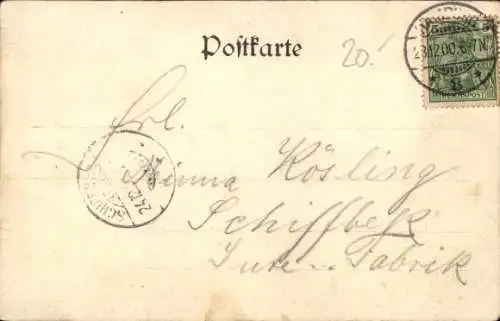 Postkarte
20.-
23.12.00.6-7N.
5
Frl.
Minna Kösling
Schiffbek
Jute-Fabrik
24.12